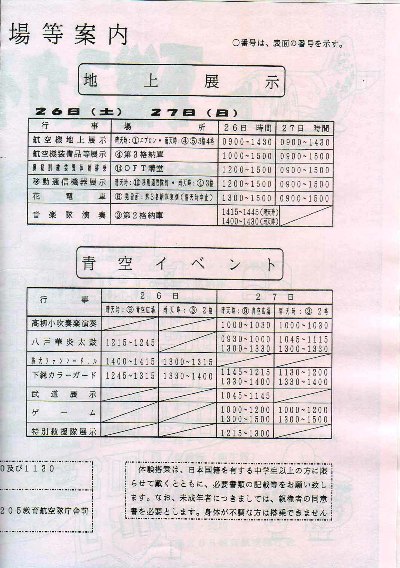 場等案内
○番号は、裏面の番号を示す。
地上展示
26日(土) 27日(日)
行事 場所 26日 時間 27日 時間
航空機地上展示 0900~1430 0900~1430
航空機装備品等展示 ④第2格納庫 1000~1500 0900~1500
1000~1500 0900~1500
移動通信機器展示 1000~1500 0900~1500
花電車 1300~1500 0900~1500
音楽隊演奏 ③第2格納庫 1415~1445
1400~1430
青空イベント
行事 26日 27日
高柳小吹奏楽演奏 1000~1030 1000~1030
八戸華炎太鼓 1215~1245 0930~1000 1045~1115
1300~1330 1300~1330
1400~1415 1300~1315
下総カラーガード 1245~1315 1330~1400 1145~1215 1130~1200
1330~1400 1330~1400
武道展示 1045~1145
ゲーム 1000~1200 1000~1200
1300~1500 1300~1500
特別救援隊展示 1215~1300
0及び1130
205教育航空隊庁舎前
体験搭乗は、日本国籍を有する中学生以上の方に限
らせて戴くとともに、必要書類の記載等をお願い致し
ます。なお、未成年者につきましては、親権者の同意
書を必要とします。身体が不調な方は搭乗できません